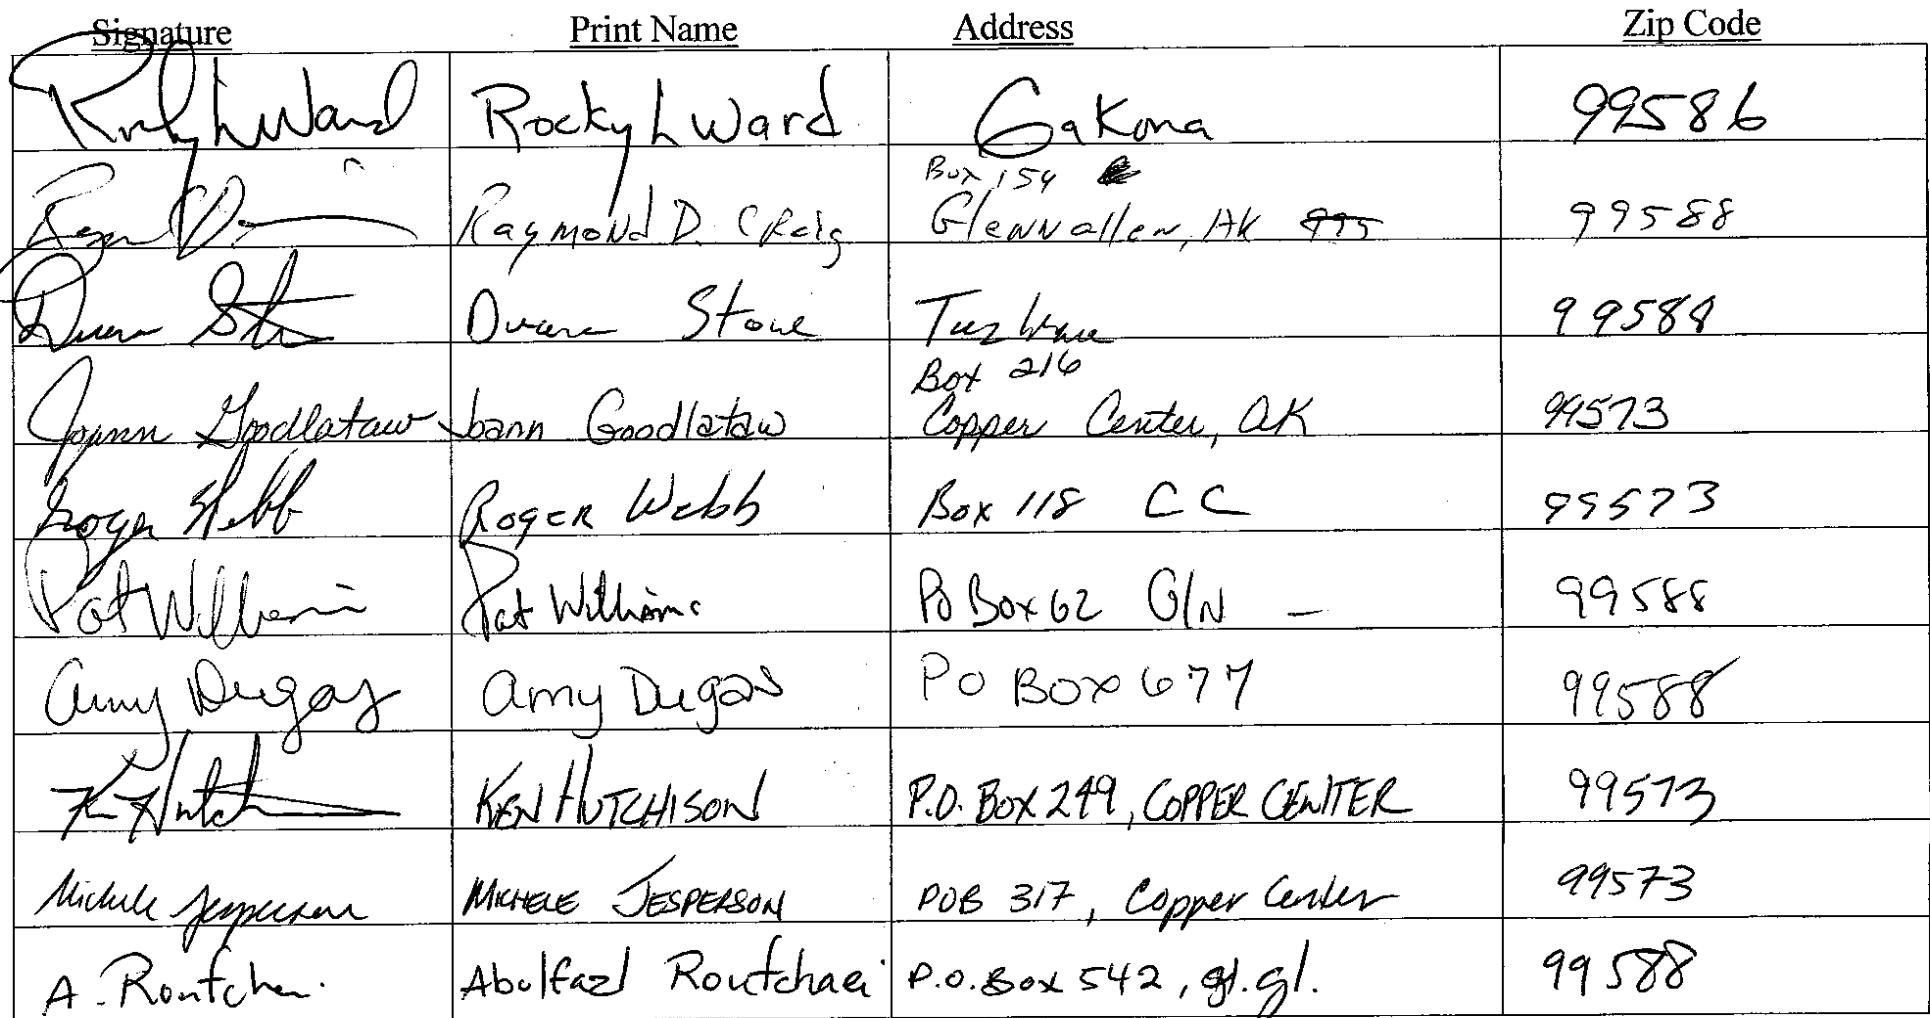 Signature Print Name Address Zip Code
Rocky L Ward Rocky L Ward Gakona 99586
Box 154
Raymond D. Craig Glennallen, AK 995 99588
Duane St Duane Stone 99588
Box 216
Joann Goodlataw Joann Goodlataw Copper Center, AK 99573
Roger Webb Roger Webb Box 118 C C 99573
Pat Williams Pat Williams Po Box 62 GlN - 99588
Amy Dugas Amy Dugas PO Box 677 99588
K Hutch KEN HUTCHISON P.O. BOX 249, COPPER CENTER 99573
Michele Jesperson MICHELE JESPERSON POB 317, Copper Center 99573
A. Routchaei Abulfazl Routchaei P.O. Box 542, gl. gl. 99588